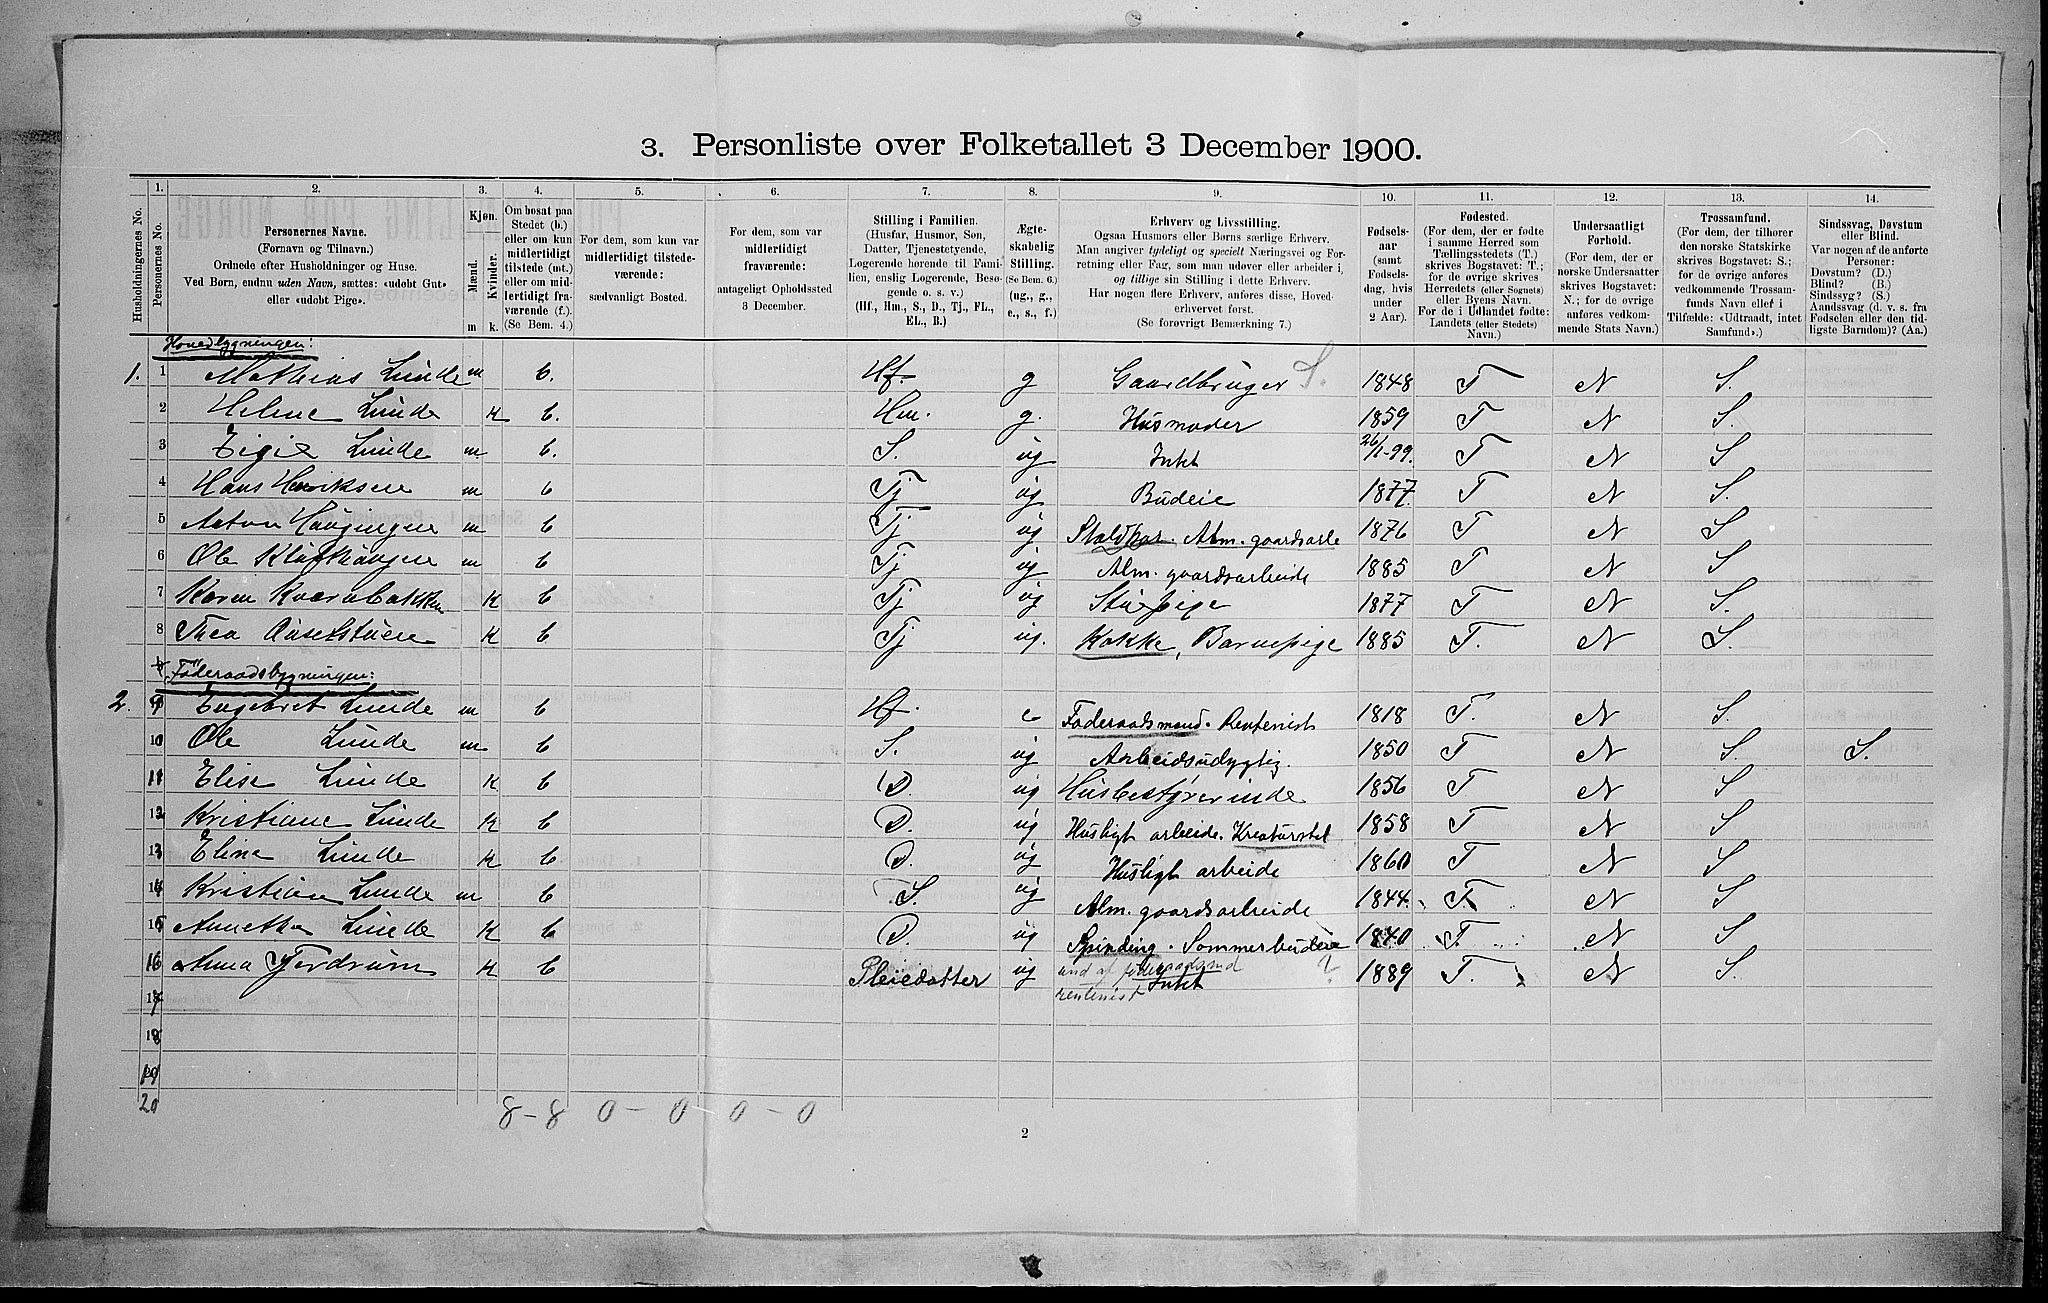 3. Personliste over Folketallet 3 December 1900.
1. 2. 3. 4. 5. 6. 7. 8. 9. 10. 11. 12. 13. 14.
Husholdningernes No.
Personernes No.
Personernes Navne.
(Fornavn og Tilnavn.)
Ordnede efter Husholdninger og Huse.
Ved Børn, endnu uden Navn, sættes: «udøbt Gut»
eller «udøbt Pige».
Kjøn.
Mænd.
Kvinder.
m k.
Om bosat paa
Stedet (b.)
eller om kun
midlertidigt
tilstede (mt.)
eller om mid-
lertidigt fra-
værende (f.).
(Se Bem. 4.)
For dem, som kun var
midlertidigt tilstede-
værende:
sædvanligt Bosted.
For dem, som var
midlertidigt
fraværende:
antageligt Opholdssted
3 December.
Stilling i Familien.
(Husfar, Husmor, Søn,
Datter, Tjenestetyende,
Logerende hørende til Fami-
lien, enslig Logerende, Besø-
gende o. s. v.)
(Hf., Hm., S., D., Tj., FL.,
EL., B.)
Ægte-
skabelig
Stilling.
(Se Bem. 6.)
(ug., g.,
e., s., f.)
Erhverv og Livsstilling.
Ogsaa Husmors eller Børns særlige Erhverv.
Man angiver tydeligt og specielt Næringsvei og For-
retning eller Fag, som man udøver eller arbeider i,
og tillige sin Stilling i dette Erhverv.
Har nogen flere Erhverv, anføres disse, Hoved-
erhvervet først.
(Se forøvrigt Bemærkning 7.)
Fødsels-
aar
(samt
Fødsels-
dag, hvis
under
2 Aar).
Fødested.
(For dem, der er fødte
i samme Herred som
Tællingsstedets (T.)
skrives Bogstavet: T.;
for de øvrige skrives
Herredets (eller Sognets)
eller Byens Navn.
For de i Udlandet fødte:
Landets (eller Stedets)
Navn.)
Undersaatligt
Forhold.
(For dem, der er
norske Undersaatter
skrives Bogstavet:
N.; for de øvrige
anføres vedkom-
mende Stats Navn.)
Trossamfund.
(For dem, der tilhører
den norske Statskirke
skrives Bogstavet: S.;
for de øvrige anføres
vedkommende Trossam-
funds Navn eller i
Tilfælde: «Udtraadt, intet
Samfund».)
Sindssvag, Døvstum
eller Blind.
Var nogen af de anførte
Personer:
Døvstum? (D.)
Blind? (B.)
Sindssyg? (S.)
Aandssvag (d. v. s. fra
Fødselen eller den tid-
ligste Barndom)? (Aa.)
Hovedbygningen:
1. 1 Mathias Lunde m b. Hf. g Gaardbruger S. 1848 T N S.
2 Helene Lunde K b. Hm. g. Husmoder 1859 T N S.
3 Lunde m b. S. ug Intet 26/1-99. T N S
4 Hans Henriksen m b Tj ug Budeie 1877. T N S.
5 Anton Haugingen m b Tj ug Staldkar. Alm. gaardsarb 1876 T N S
6 Ole m b Tj ug Alm. gaardsarbeide 1885 T N S
7 Karen Kvernbakken K b Tj ug Stuepige 1877 T N S.
8 Thea K b Tj ug. Kokke, Barnepige 1885 T. N S.
Föderaadsbygningen:
2. 9 Engebret Lunde m b Hf. e Föderaadsmand. Rentenist 1818 T. N S.
10 Ole Lunde m b S. ug Arbeidsudygtig. 1850 T N S. S.
11 Elise Lunde K b D. ug Husbestyrerinde 1856 T N S
12 Kristiane Lunde K b D. ug Husligt arbeide. Kreaturstel 1858 T N S
13 Elina Lunde K b D. ug Husligt arbeide 1860 T N S
14 Kristian Lunde m b S. ug Alm. gaardsarbeide 1844. T. N S
15 Annetha Lunde K b D. ug Spinding. Sommerbudeie 1840 T. N S
16 Anna Fordrum K b Pleiedatter ug Intet ? 1889 T. N S.
und af föderaadsmd
rentenist
17
18
19
20
8 - 8 0 - 0 0 - 0
2